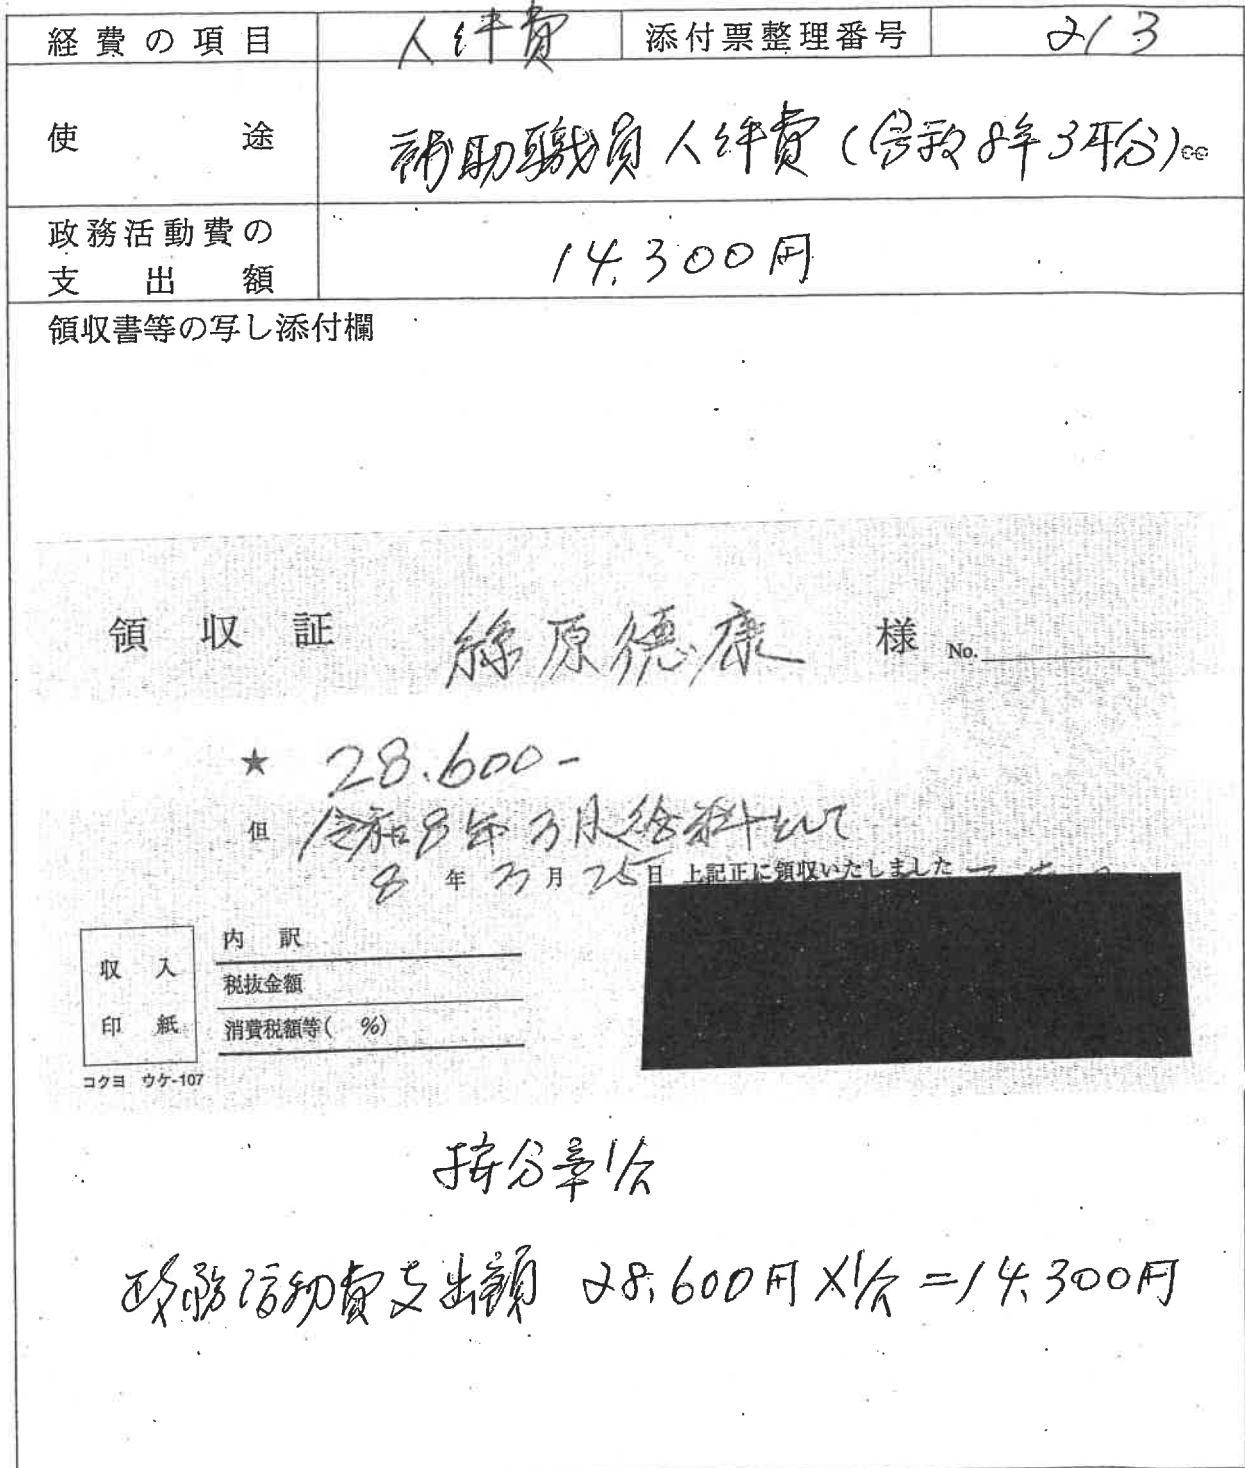 経費の項目 人件費 添付票整理番号 213
使途 補助職員人件費(令和8年3月分)
政務活動費の支出額 14,300円
領収書等の写し添付欄
領収証 絲原徳康 様 No.
★ 28.600-
但 令和8年3月給料として
8年3月25日 上記正に領収いたしました
収入印紙
内訳
税抜金額
消費税額等( %)
コクヨ ウケ-107
按分率1/2
政務活動費支出額 28,600円×1/2=14,300円